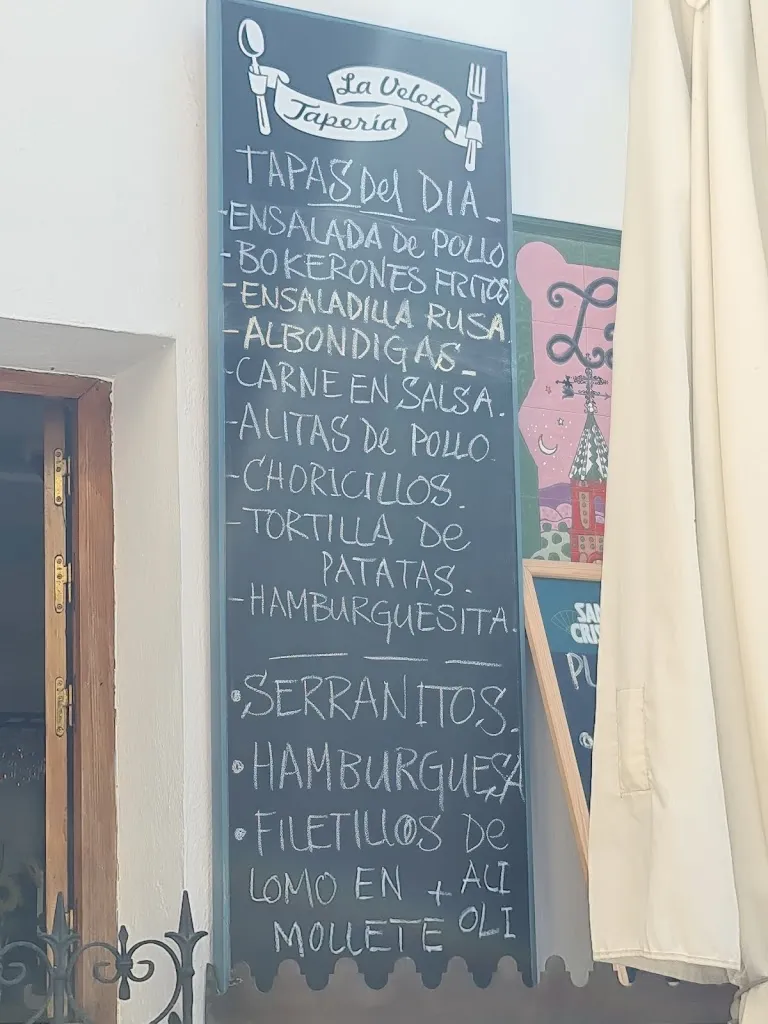 La Veleta
Tapería
TAPAS Del DIA_
-ENSALADA de POLLO
-BOKERONES FRITOS
-ENSALADILLA RUSA
-ALBONDIGAS_
-CARNE EN SALSA.
-ALITAS de POLLO
-CHORICILLOS.
-TORTILLA De
PATATAS.
-HAMBURGUESITA.
•SERRANITOS.
•HAMBURGUESA
•FILETILLOS De
LOMO EN + ALI
MOLLETE OLI